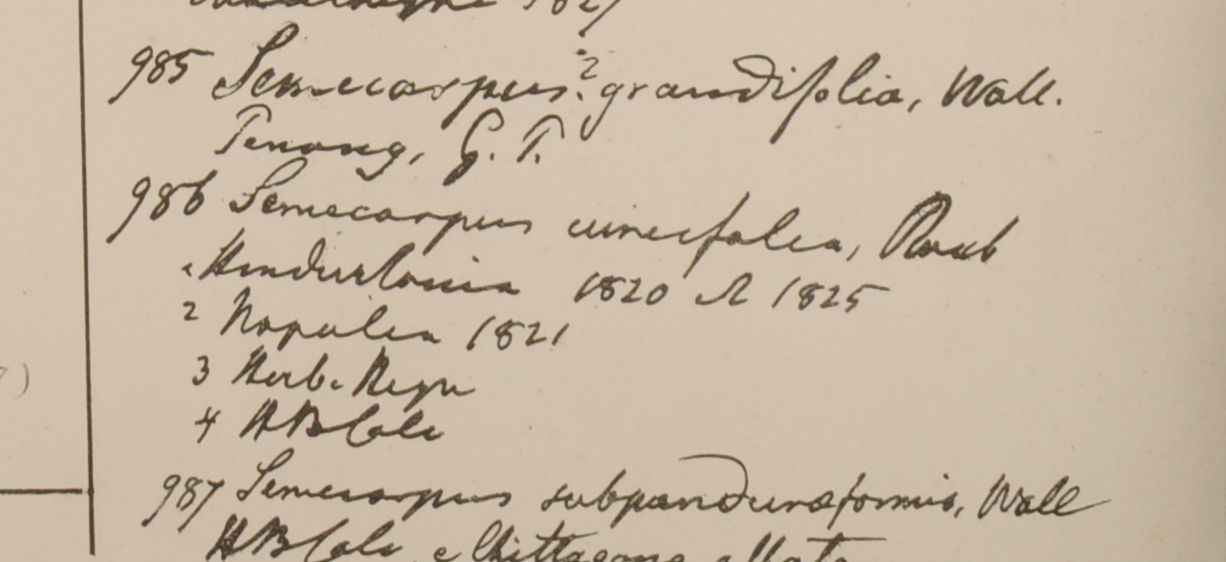 1827
985 Semecarpus? grandifolia, Wall.
Penang, G. P.
986 Semecarpus cuneifolia, Roxb
1 Hindustania 1820 & 1825
2 Napalia 1821
3 Herb. Heyn
4 HBCalc
987 Semecarpus subpanduraeformis, Wall
HBCalc e Chittagong allata